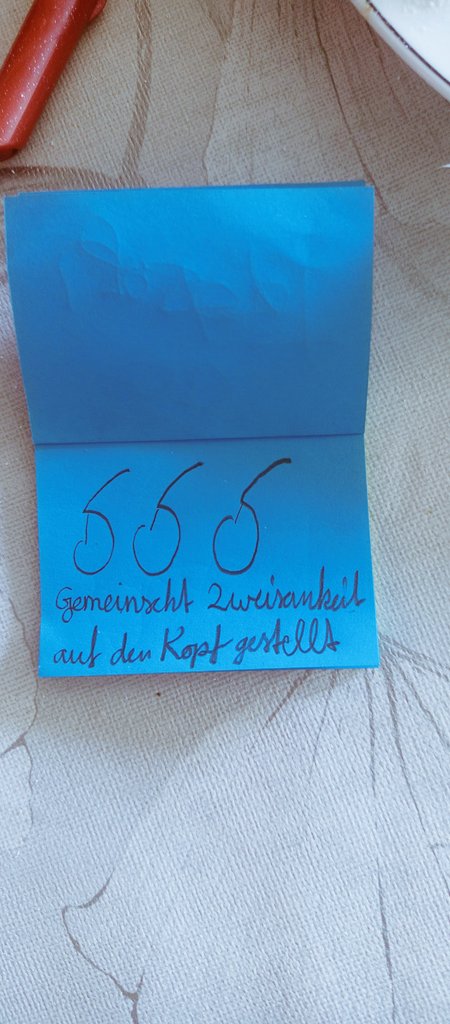 Gemeinscht Zweisankeit
auf den Kopf gestellt